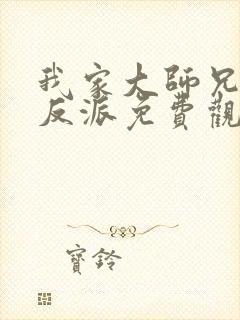 我家大師兄
反派免費觀
寳鈴